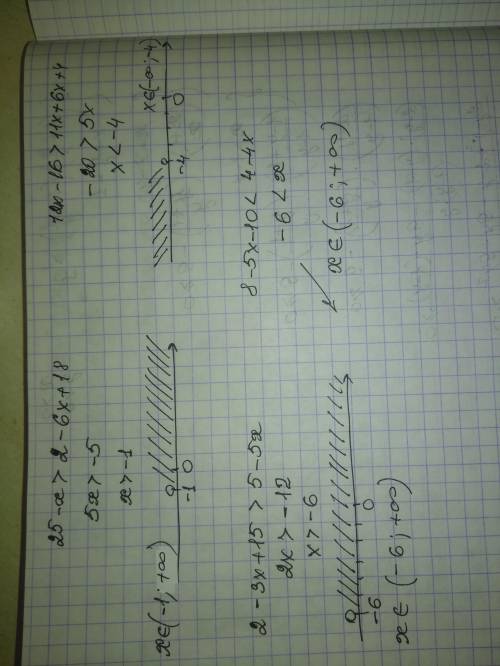 25-x > 2-6x+18
5x > -5
x > -1
-1 0
x∈(-1; +∞)
12x-16 > 11x+6x+4
-20 > 5x
x < -4
x∈(-∞; -4)
-4 0
2-3x+15 > 5-5x
2x > -12
x > -6
-6 0
x∈ (-6; +∞)
8-5x-10 < 4-4x
-6 < x
x∈(-6; +∞)